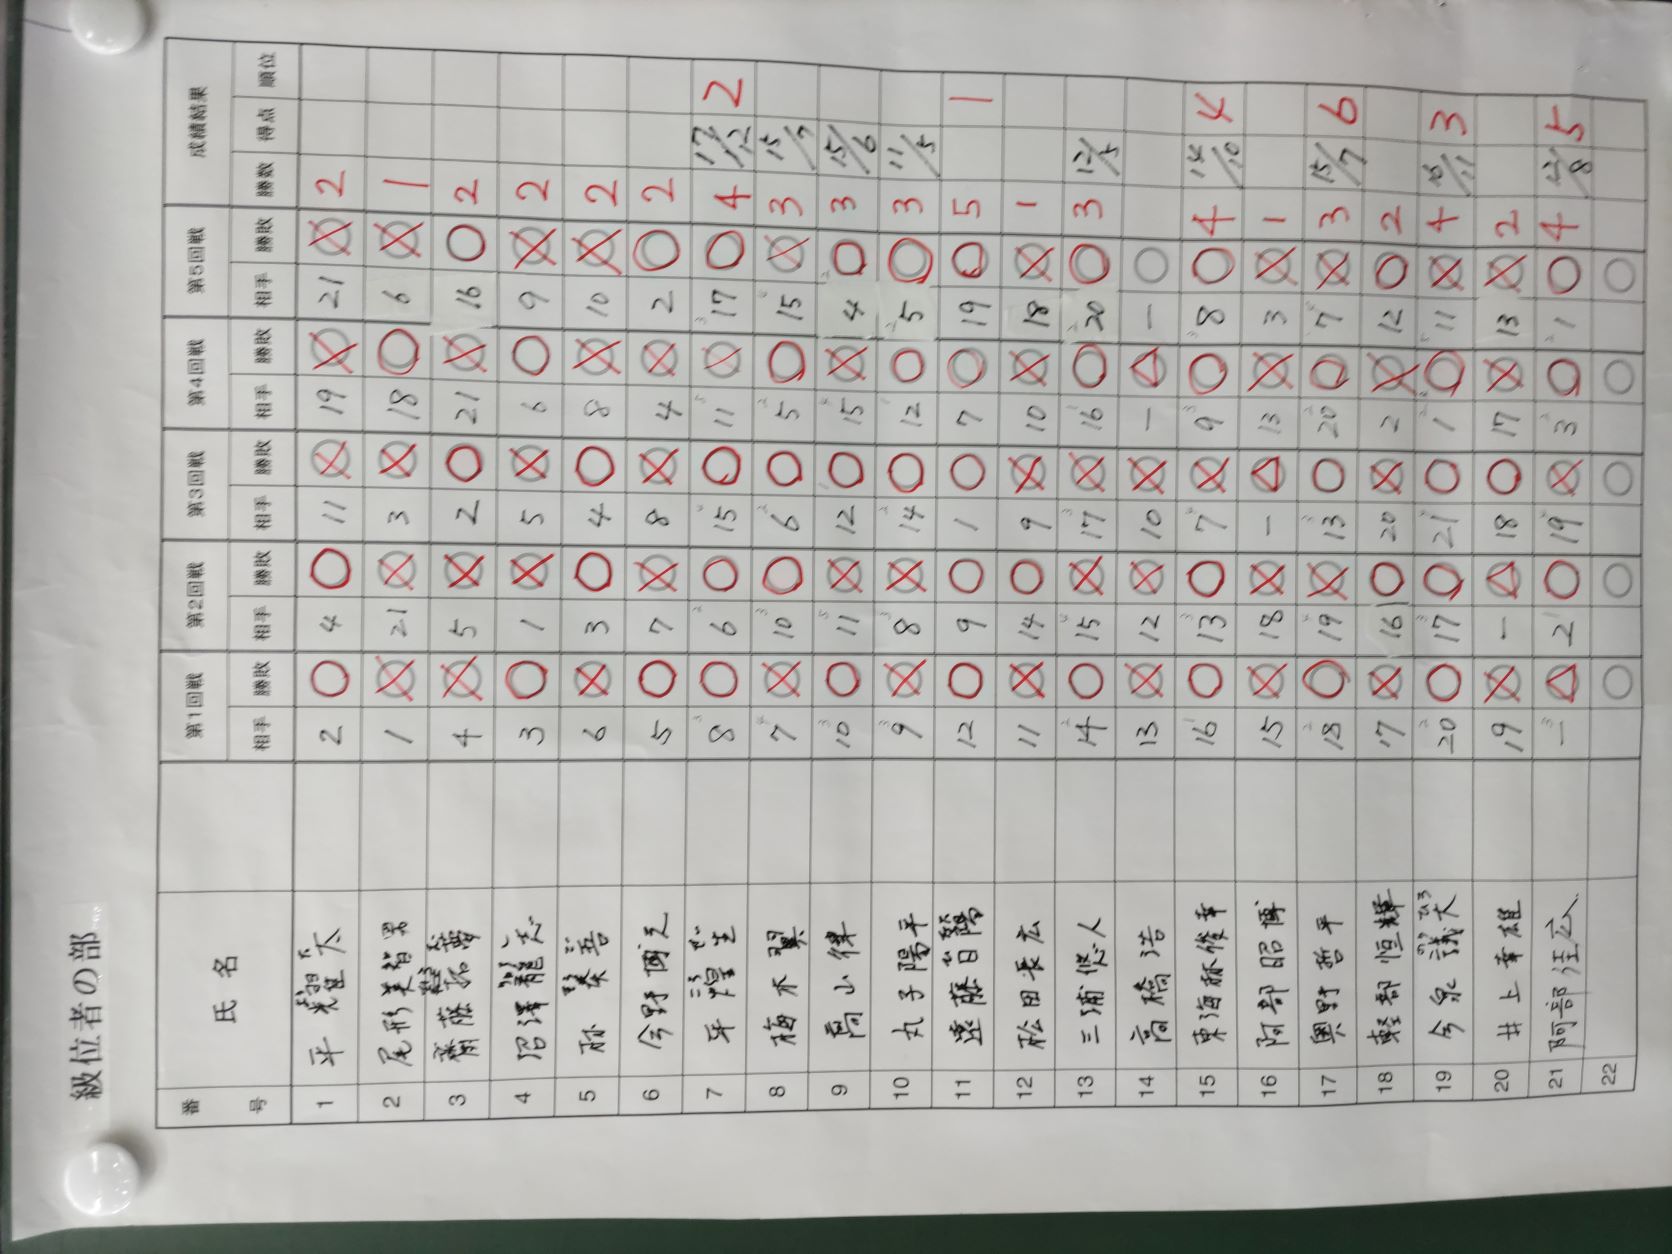 級位者の部
番号 氏名 第1回戦 第2回戦 第3回戦 第4回戦 第5回戦 成績結果
相手 勝敗 相手 勝敗 相手 勝敗 相手 勝敗 相手 勝敗 勝数 得点 順位
1 平 太 2 ○ 4 ○ 11 × 19 × 21 × 2
2 尾形美智男 1 × 21 × 3 × 18 ○ 6 × 1
3 齋藤拓夢 4 × 5 × 2 ○ 21 × 16 ○ 2
4 沼澤龍 3 ○ 1 × 5 × 6 ○ 9 × 2
5 孫 6 × 3 ○ 4 ○ 8 × 10 × 2
6 今野 5 ○ 7 × 8 × 4 × 2 ○ 2
7 平 煌 8 ○ 6 ○ 15 ○ 11 × 17 ○ 4 17/12 2
8 梅木翼 7 × 10 ○ 6 ○ 5 ○ 15 × 3 15/7
9 高山 10 ○ 11 × 12 ○ 15 × 4 ○ 3 15/6
10 丸子陽平 9 × 8 × 14 ○ 12 ○ 5 ○ 3 11/5
11 遠藤 陽 12 ○ 9 ○ 1 ○ 7 ○ 19 ○ 5 1
12 松田長広 11 × 14 ○ 9 × 10 × 18 × 1
13 三浦悠人 14 ○ 15 × 17 × 16 ○ 20 ○ 3 12/5
14 高橋浩 13 × 12 × 10 × ー △ ー ○
15 東海林俊幸 16 ○ 13 ○ 7 × 9 ○ 8 ○ 4 14/10 4
16 阿部昭博 15 × 18 × ー △ 13 × 3 × 1
17 奥野哲平 18 ○ 19 × 13 ○ 20 ○ 7 × 3 15/7 6
18 軽部恒輝 17 × 16 ○ 20 × 2 × 12 ○ 2
19 今泉議大 20 ○ 17 ○ 21 ○ 1 ○ 11 × 4 16/11 3
20 井上幸雄 19 × ー △ 18 ○ 17 × 13 × 2
21 阿部 ー △ 2 ○ 19 × 3 ○ 1 ○ 4 12/8 5
22 ○ ○ ○ ○ ○